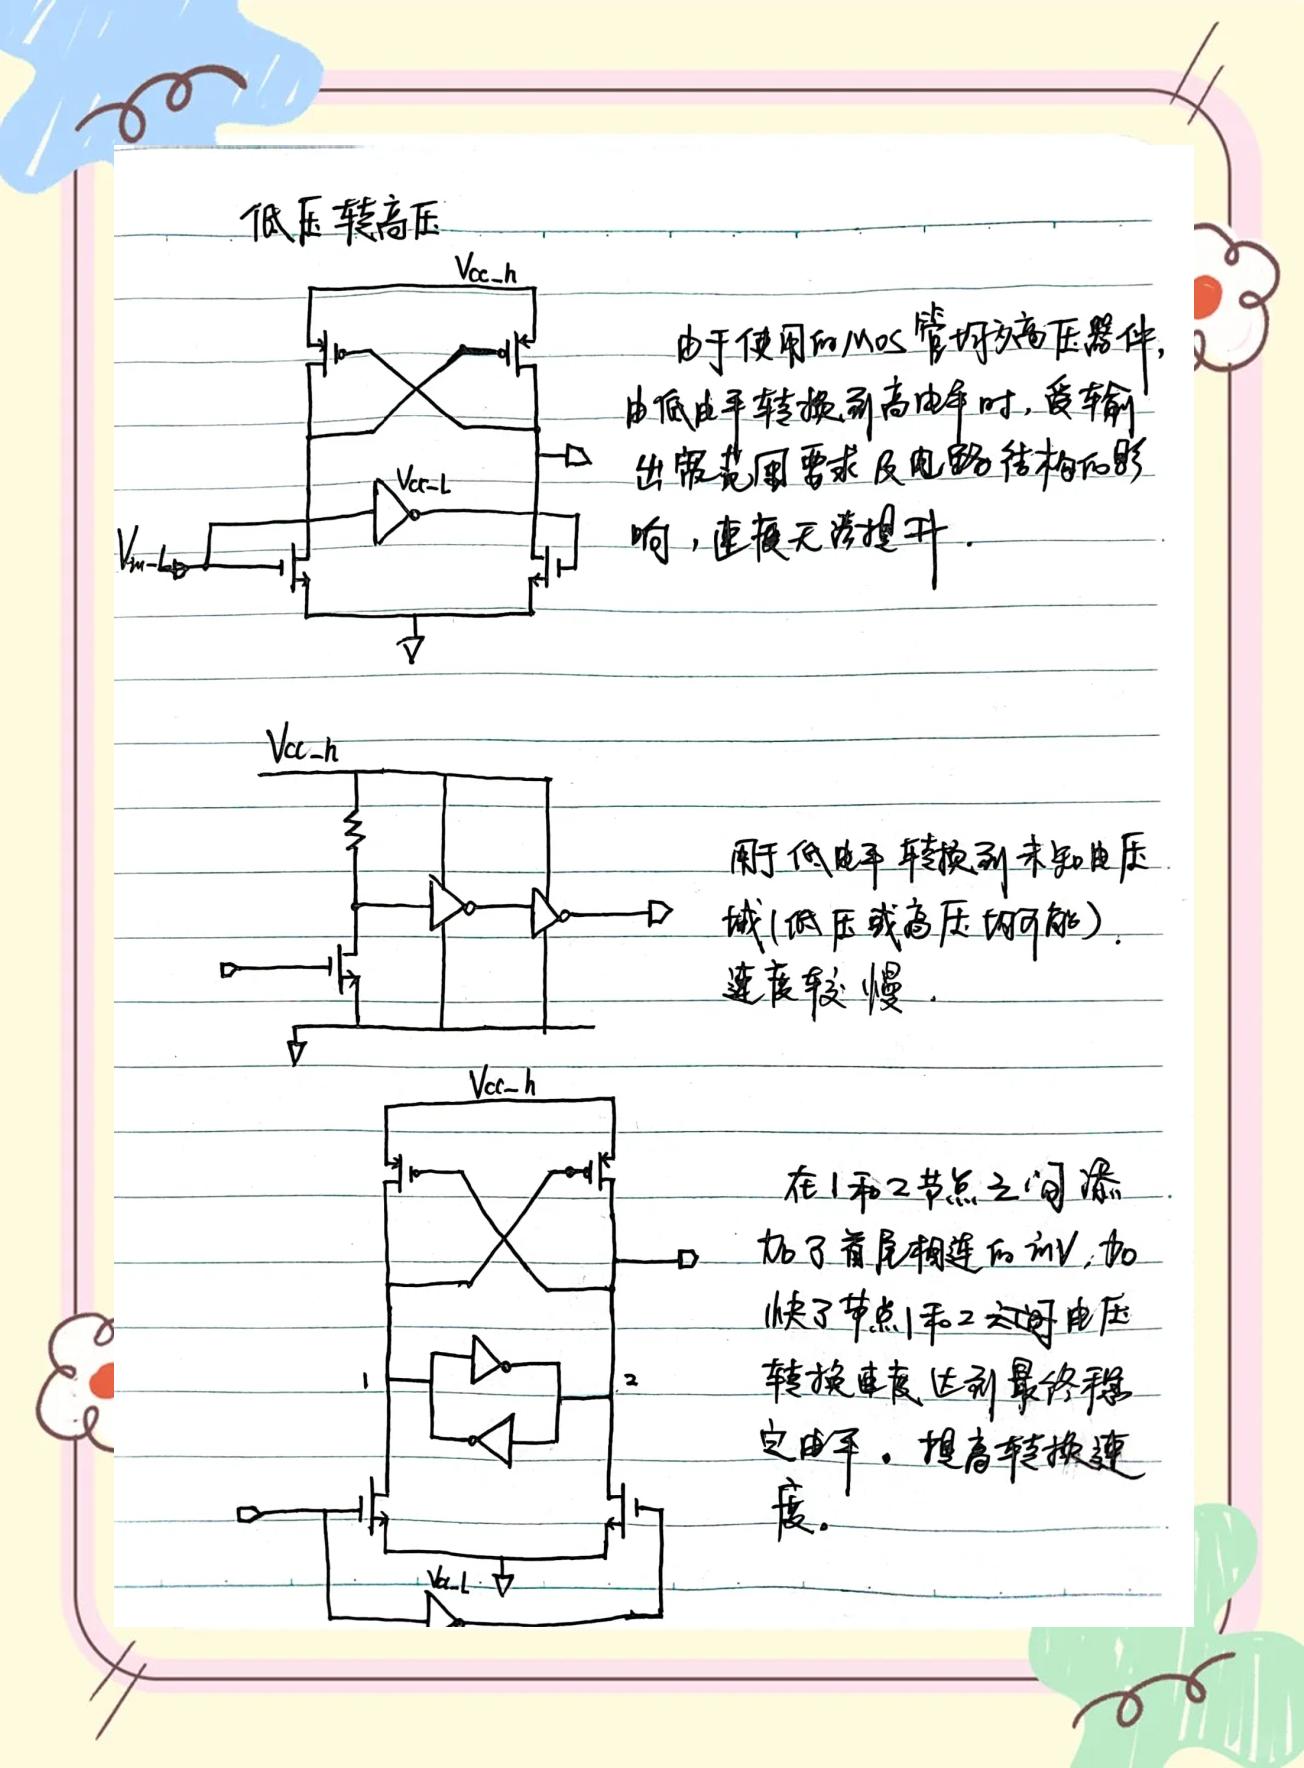 低压转高压
Vcc_h
由于使用的MOS管均为高压器件,
由低电平转换到高电平时,受输
出宽范围要求及电路结构的影
响,速度无法提升.
Vcc-L
Vin-L
Vcc_h
用于低电平转换到未知电压
域(低压或高压均可能).
速度较慢.
Vcc_h
在1和2节点之间添
加了首尾相连的inv,加
快了节点1和2之间电压
转换速度达到最终稳
定电平。提高转换速
度。
1
2
Vcc_L